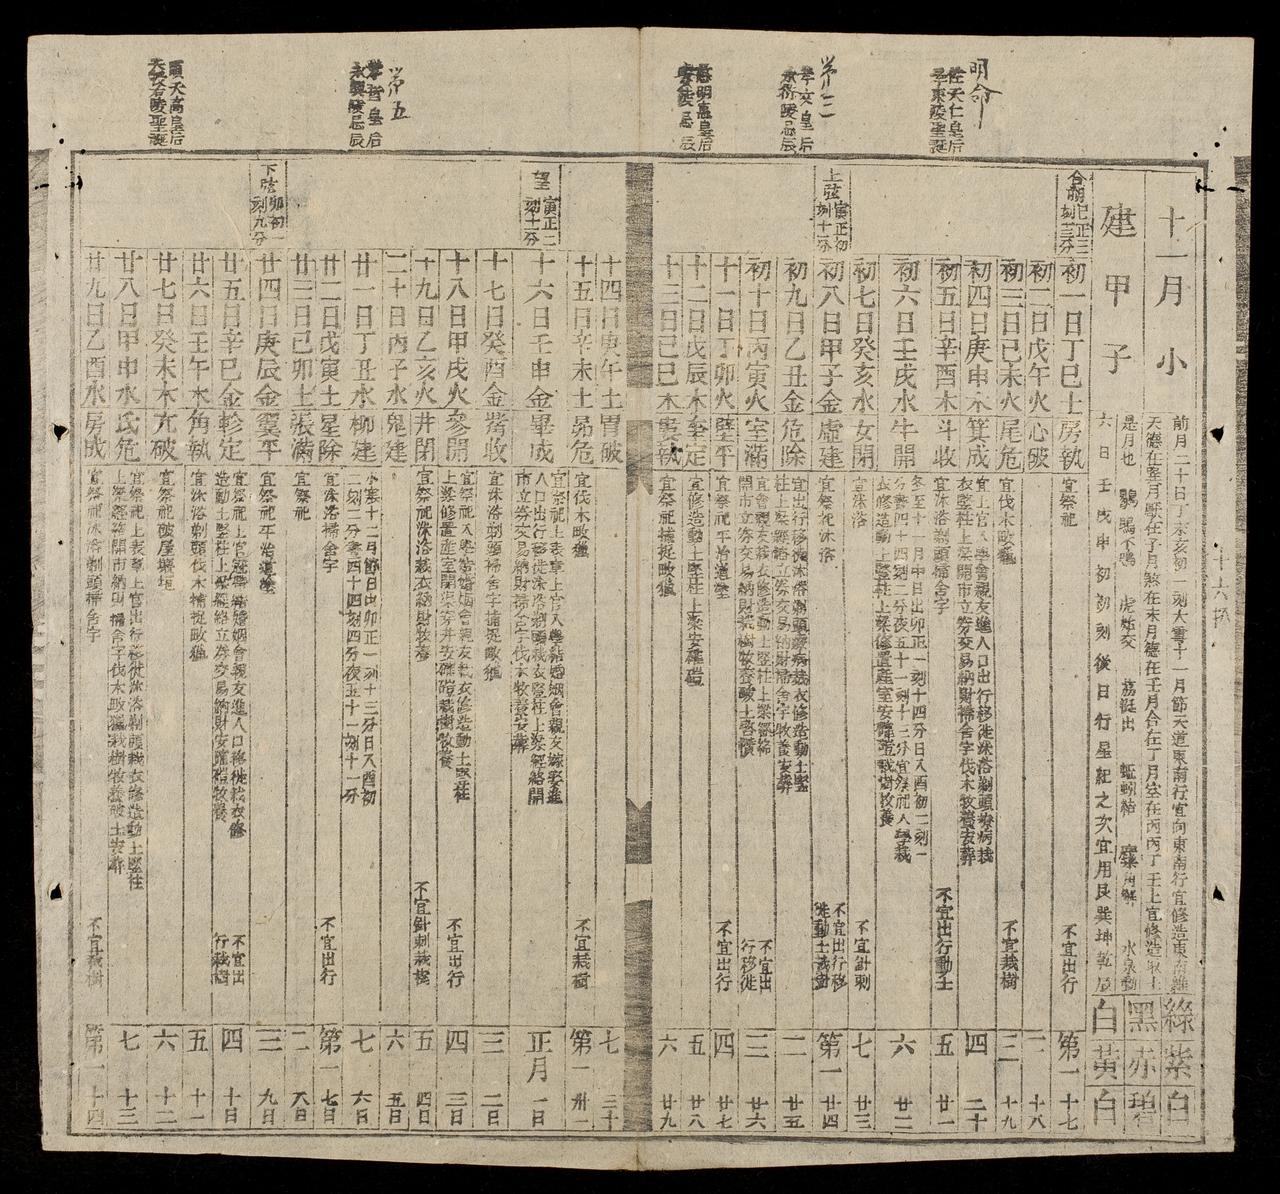 明命
佐天仁皇后
孝東陵聖誕
孝文皇后
永衍陵忌辰
第五
孝哲皇后
永興陵忌辰
順天高皇后
天授右陵聖誕
十一月小
建甲子
前月二十日丁未亥初一刻大雪十一月節天道東南行宜向東南行宜修造東南維
天德在巽月厭在子月煞在未月德在壬月合在丁月空在丙丙丁壬上宜修造取土
是月也 鶡鴠不鳴 虎始交 荔挺出 蚯蚓結 麋角解 水泉動
六日壬戌申初初刻後日行星紀之次宜用艮巽坤乾辰
綠紫白
黑赤碧
白黃白
合朔巳正三刻三分
初一日丁巳土房執 宜祭祀 不宜出行 第一 十七
初二日戊午火心破 二 十八
初三日己未火尾危 宜伐木畋獵 不宜栽樹 三 十九
初四日庚申木箕成 宜上官入學會親友進人口出行移徙沐浴剃頭療病裁
衣豎柱上梁開市立券交易納財掃舍宇伐木牧養安葬 四 二十
初五日辛酉木斗收 宜沐浴剃頭掃舍宇 不宜出行動土 五 廿一
初六日壬戌水牛開 冬至十一月中日出卯正一刻十四分日入酉初二刻一
分晝四十四刻二分夜五十一刻十三分宜祭祀入學裁
衣修造動土豎柱上梁修置產室安碓磑栽樹牧養 六 廿二
初七日癸亥水女閉 宜沐浴 不宜針刺 七 廿三
上弦寅正初刻十二分
初八日甲子金虛建 宜祭祀沐浴 不宜出行移
徙動土栽樹 第一 廿四
初九日乙丑金危除 宜出行移徙沐浴剃頭療病裁衣修造動土豎
柱上梁經絡立券交易納財掃舍宇牧養安葬 二 廿五
初十日丙寅火室滿 宜會親友裁衣修造動土豎柱上梁經絡
開市立券交易納財栽樹牧養破土啓攢 不宜出
行移徙 三 廿六
十一日丁卯火壁平 宜祭祀平治道塗 不宜出行 四 廿七
十二日戊辰木奎定 宜修造動土豎柱上梁安碓磑 五 廿八
十三日己巳木婁執 宜祭祀捕捉畋獵 六 廿九
十四日庚午土胃破 七 三十
十五日辛未土昴危 宜伐木畋獵 不宜栽樹 第一 卅一
望寅正二刻十一分
十六日壬申金畢成 宜祭祀上表章上官入學結婚姻會親友嫁娶進
人口出行移徙沐浴剃頭裁衣豎柱上梁經絡開
市立券交易納財掃舍宇伐木牧養安葬 正月 一日
十七日癸酉金觜收 宜沐浴剃頭掃舍宇捕捉畋獵 二 二日
十八日甲戌火參開 宜祭祀入學結婚姻會親友裁衣修造動土豎柱
上梁修置產室開渠穿井安碓磑栽樹牧養 不宜出行 四 三日
十九日乙亥火井閉 宜祭祀沐浴裁衣納財牧養 不宜針刺栽樹 五 四日
二十日丙子水鬼建 六 五日
廿一日丁丑水柳建 小寒十二月節日出卯正一刻十三分日入酉初
二刻二分晝四十四刻四分夜五十一刻十一分 七 六日
廿二日戊寅土星除 宜沐浴掃舍宇 不宜出行 第一 七日
廿三日己卯土張滿 宜祭祀 二 八日
下弦卯初一刻九分
廿四日庚辰金翼平 宜祭祀平治道塗 三 九日
廿五日辛巳金軫定 宜祭祀上官冠帶結婚姻會親友進人口移徙裁衣修
造動土豎柱上梁經絡立券交易納財安碓磑牧養 不宜出
行栽樹 四 十日
廿六日壬午木角執 宜沐浴剃頭伐木捕捉畋獵 五 十一
廿七日癸未木亢破 宜祭祀破屋壞垣 六 十二
廿八日甲申水氐危 宜祭祀上表章上官出行移徙沐浴剃頭裁衣修造動土豎柱
上梁經絡開市納財掃舍宇伐木畋獵栽樹牧養破土安葬 七 十三
廿九日乙酉水房成 宜祭祀沐浴剃頭掃舍宇 不宜栽樹 第一 十四